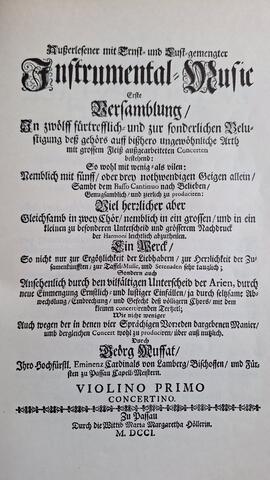 Außerlesener mit Ernst- und Lust-gemengter
Instrumental-Music
Erste
Versamblung/
In zwölff fürtrefflich- und zur sonderlichen Belu-
stigung deß gehörs auff bißhero ungewöhnliche Arth
mit grossem Fleiß außgearbeiteten Concerten
bestehend:
So wohl mit wenig, als vilen:
Nemblich mit fünff/ oder drey nothwendigen Geigen allein/
Sambt dem Basso Continuo nach Belieben/
Genugsamblich, und zierlich zu produciren:
Viel herrlicher aber
Gleichsamb in zwey Chör/ nemblich in ein grossen/ und in ein
kleinen zu besonderen Unterscheid und grösserem Nachdruck
der Harmoni
Ein Werck/
So nicht nur zur Ergötzligkeit der Liebhabern/ zur Herrlichkeit der Zu-
sammkünfften/ zur Taffel-Music, und Serenaden sehr tauglich;
Sondern auch
Ansehenlich durch den vilfältigen Unterscheid der Arien, durch
neue Einmengung Ernstlich- und lustiger Einfällen/ ja durch seltzame Ab-
wechslung/ Einbrechung/ und Gefecht deß völligern Chors/ mit dem
kleinen concertirenden Tertzetl;
Wie nicht weniger
Auch wegen der in denen vier Sprächigen Vorreden dargebenen Manier/
und dergleichen Concert wohl zu produciren/ über auß nutzlich.
Durch
Georg Muffat/
Ihro Hochfürstl. Eminenz Cardinals von Lamberg/ Bischoffen/ und Für-
sten zu Passau Capell-Meistern.
VIOLINO PRIMO
CONCERTINO.
Zu Passau
Durch die Wittib Maria Margaretha Höllerin.
M. DCCI.